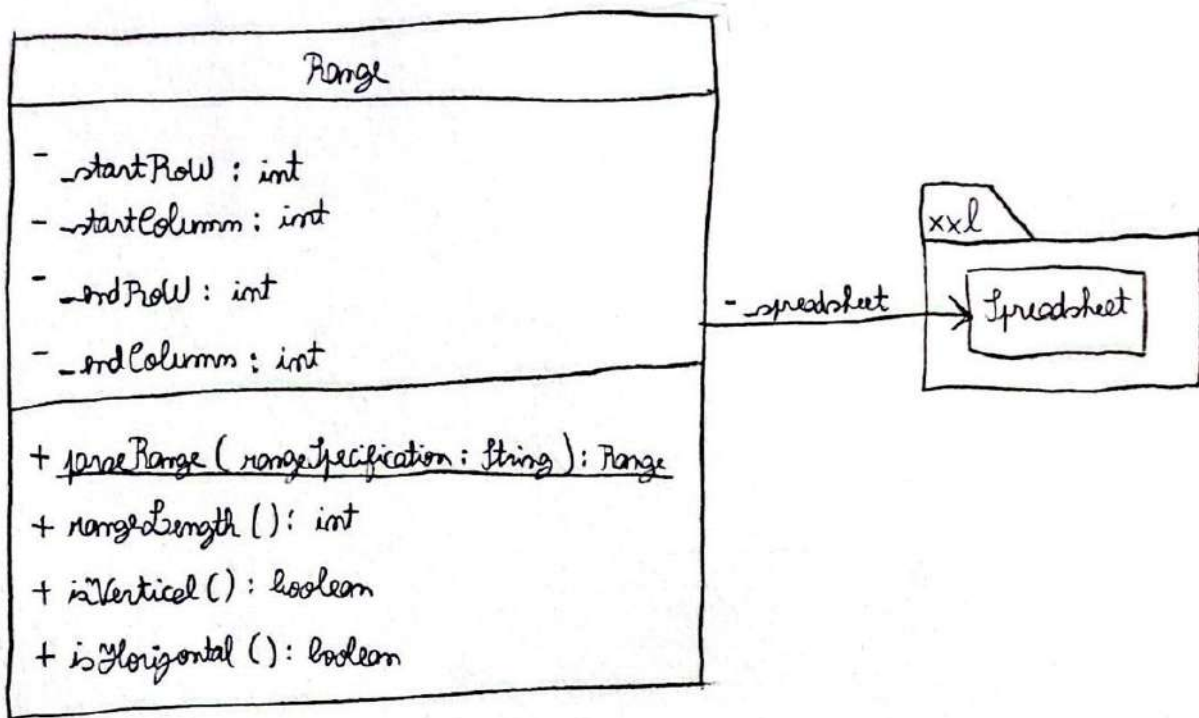 Range
- _startRow : int
- _startColumn : int
- _endRow : int
- _endColumn : int
+ parseRange ( rangeSpecification : String ) : Range
+ rangeLength () : int
+ isVertical () : boolean
+ isHorizontal () : boolean
- _spreadsheet
xxl
Spreadsheet